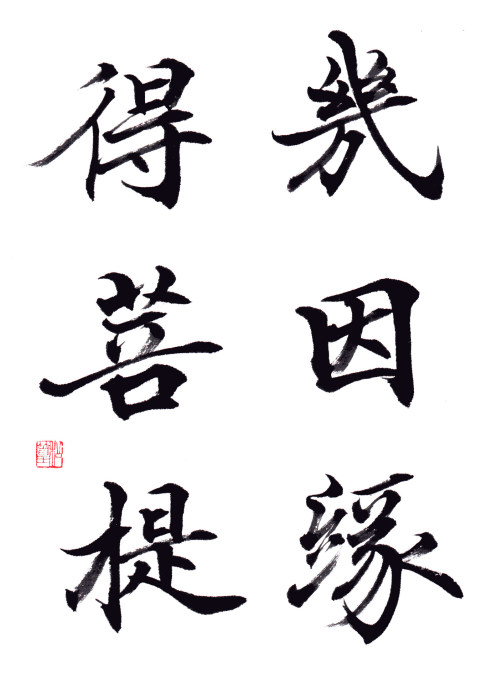 幾因緣
得菩提